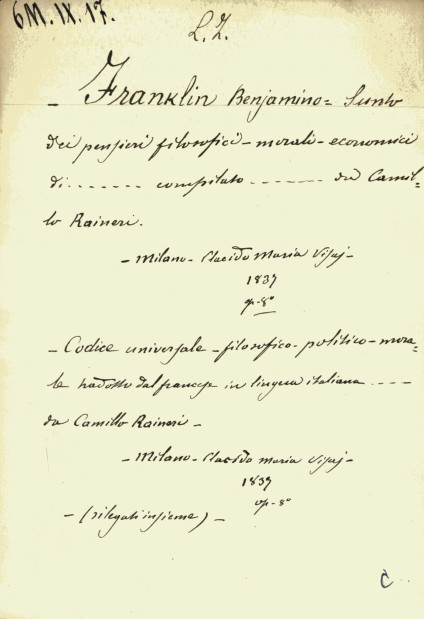 6M.IX.17.
L.Z.
- Franklin Benjamino = Sunto
dei pensieri filosofici - morali - economici
di ....... compilato ....... da Camil=
lo Raineri.
- Milano - Placido Maria Visaj -
1837
op-8°
- Codice universale - filosofico - politico - mora=
le tradotto dal francese in lingua italiana ....
da Camillo Raineri -
- Milano - Placido Maria Visaj -
1837
op-8°
- (rilegati insieme) -
C